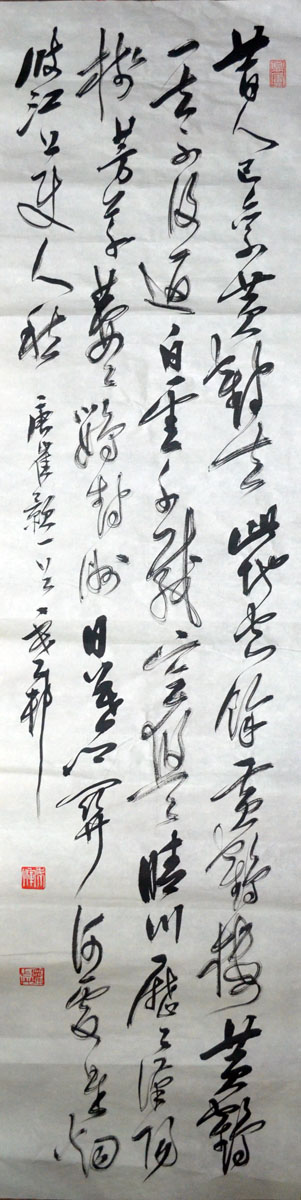 昔人已乘黄鶴去此地空餘黄鶴樓黄鶴
一去不復返白雲千載空悠々晴川歷々漢陽
樹芳草萋々鸚鵡洲日暮鄉關何處是烟
波江上使人愁
唐崔顥一首